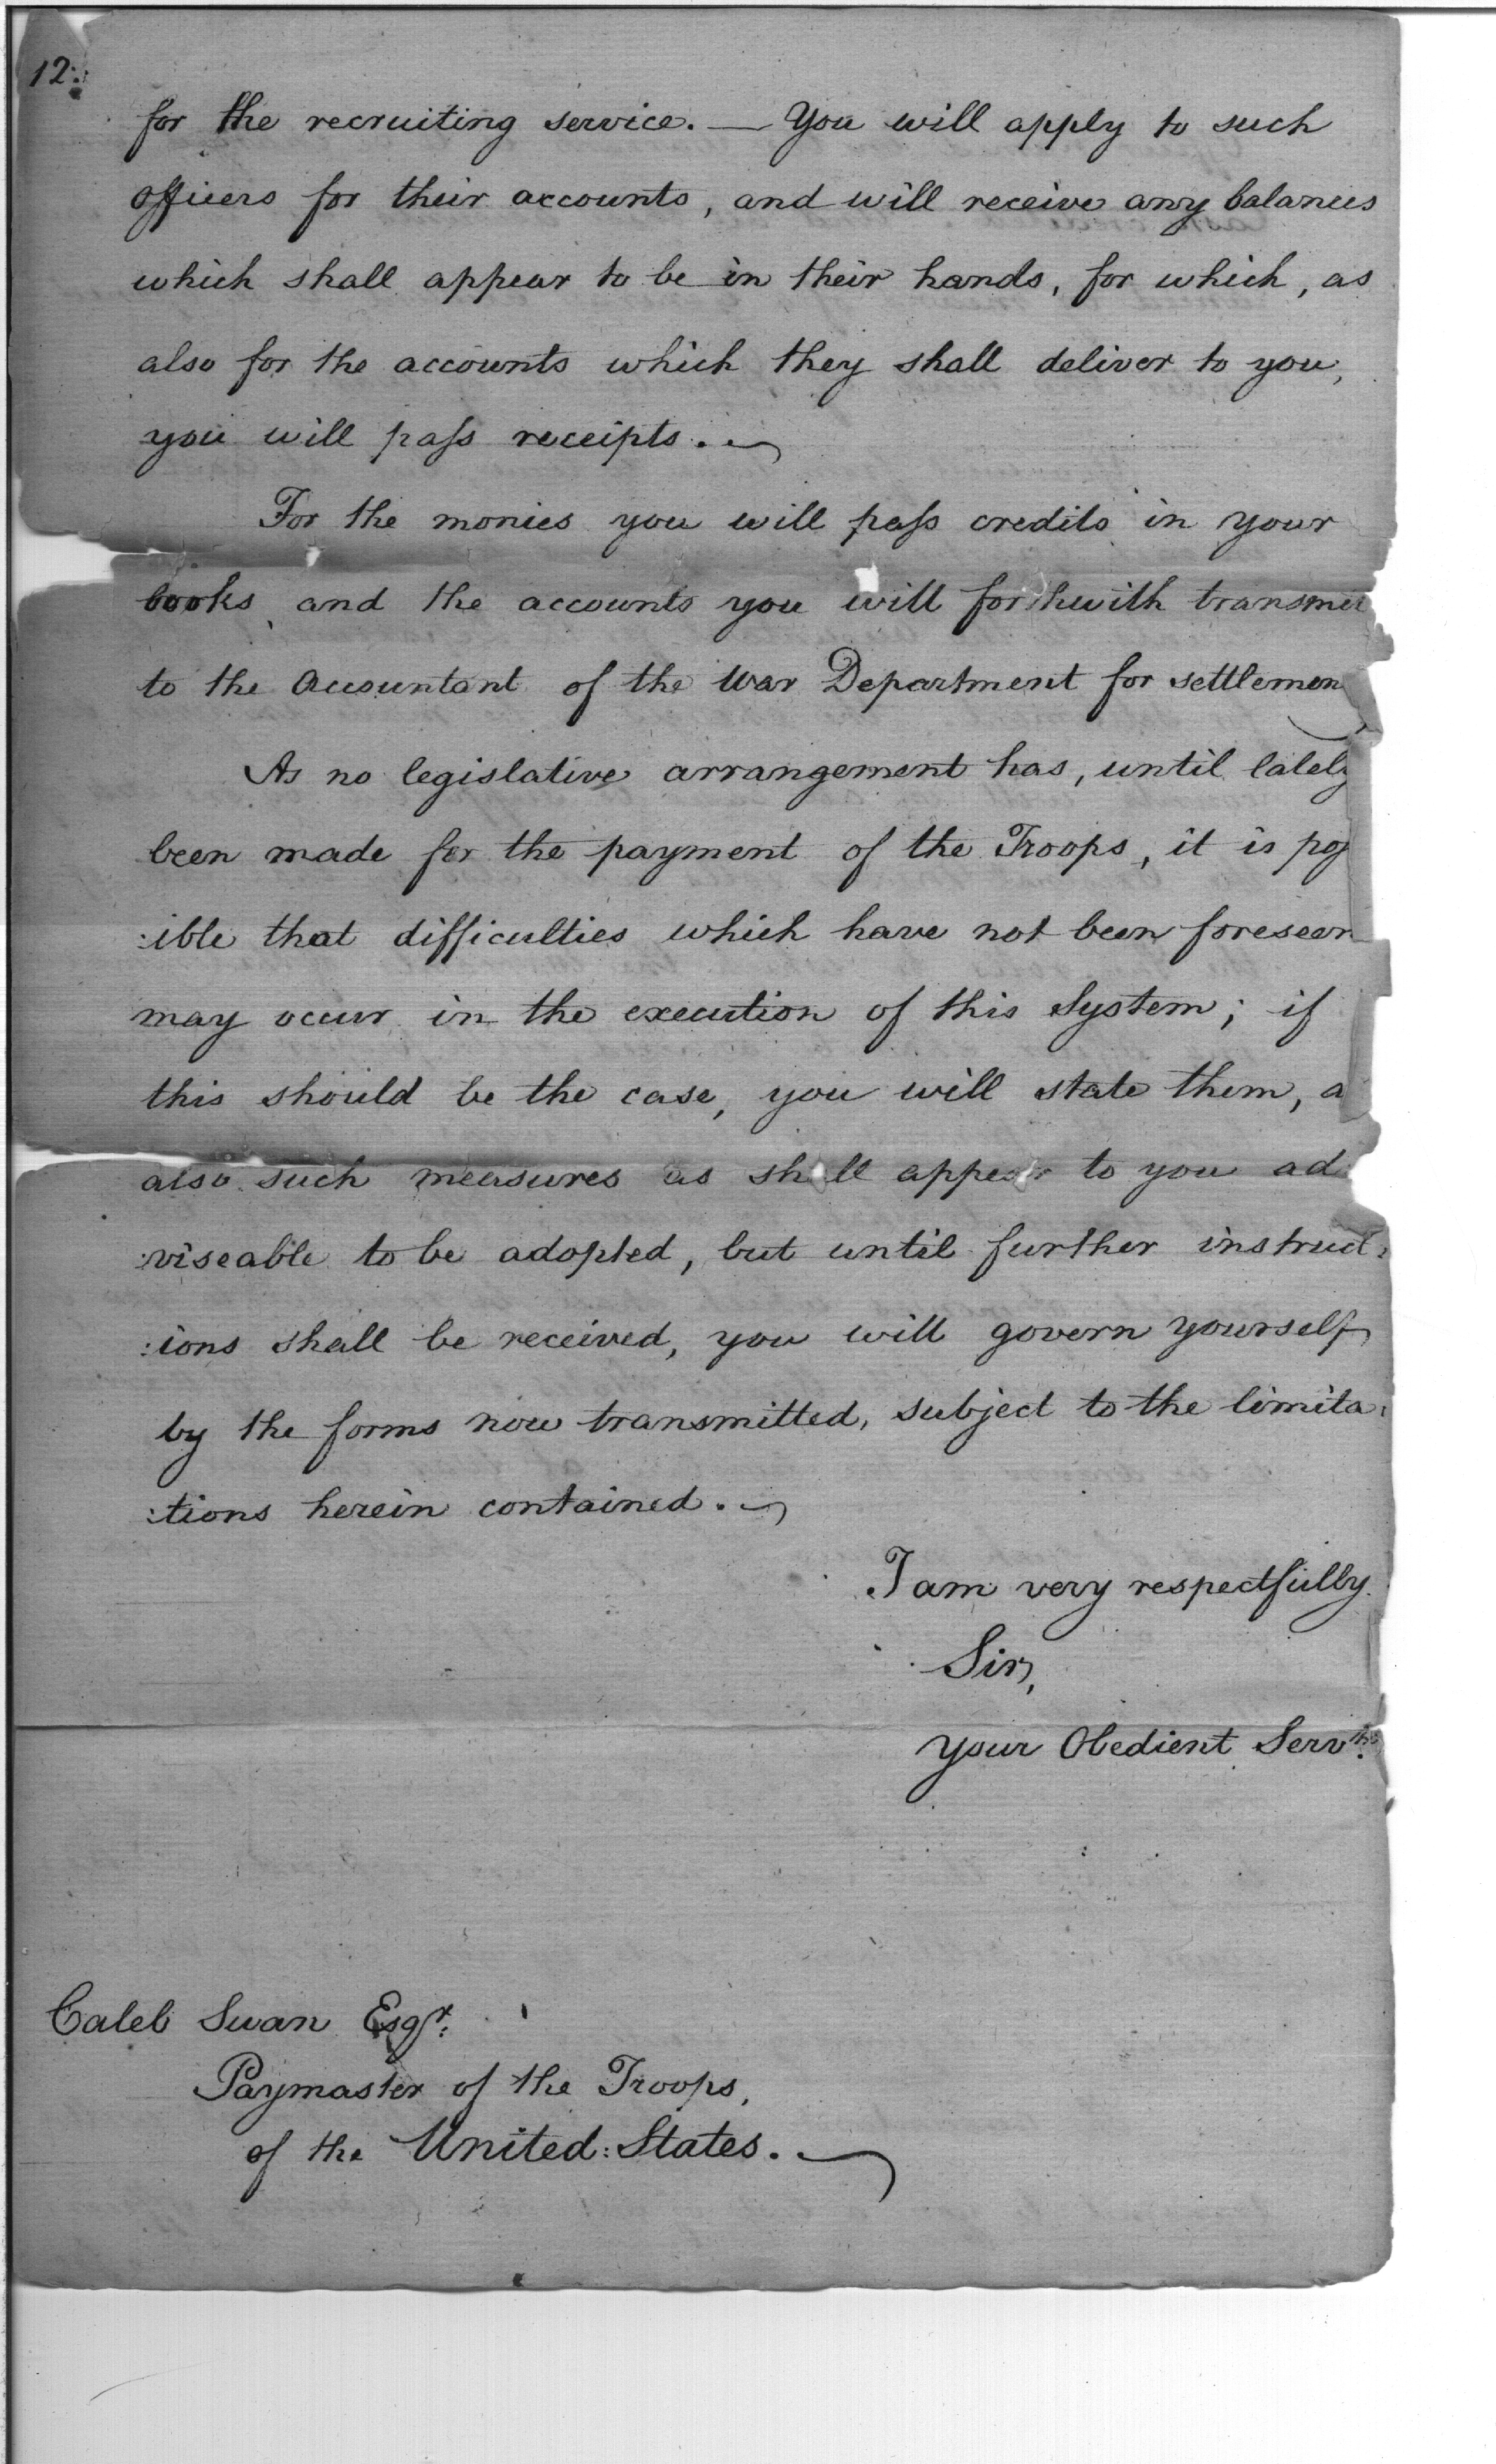 12.
for the recruiting service. — You will apply to such
officers for their accounts, and will receive any balances
which shall appear to be in their hands, for which, as
also for the accounts which they shall deliver to you,
you will paſs receipts.
For the monies you will paſs credits in your
books, and the accounts you will forthwith transmit
to the Accountant of the War Department for settlemen
As no legislative arrangement has, until lately
been made for the payment of the Troops, it is poſ
:ible that difficulties which have not been foreseen
may occur in the execution of this System; if
this should be the case, you will state them, a
also such measures as shall appear to you ad
:viseable to be adopted, but until further instruct:
:ions shall be received, you will govern yourself
by the forms now transmitted, subject to the limita:
:tions herein contained.
I am very respectfully
Sir,
your Obedient Serv.
Caleb Swan Esqr:
Paymaster of the Troops,
of the United: States.